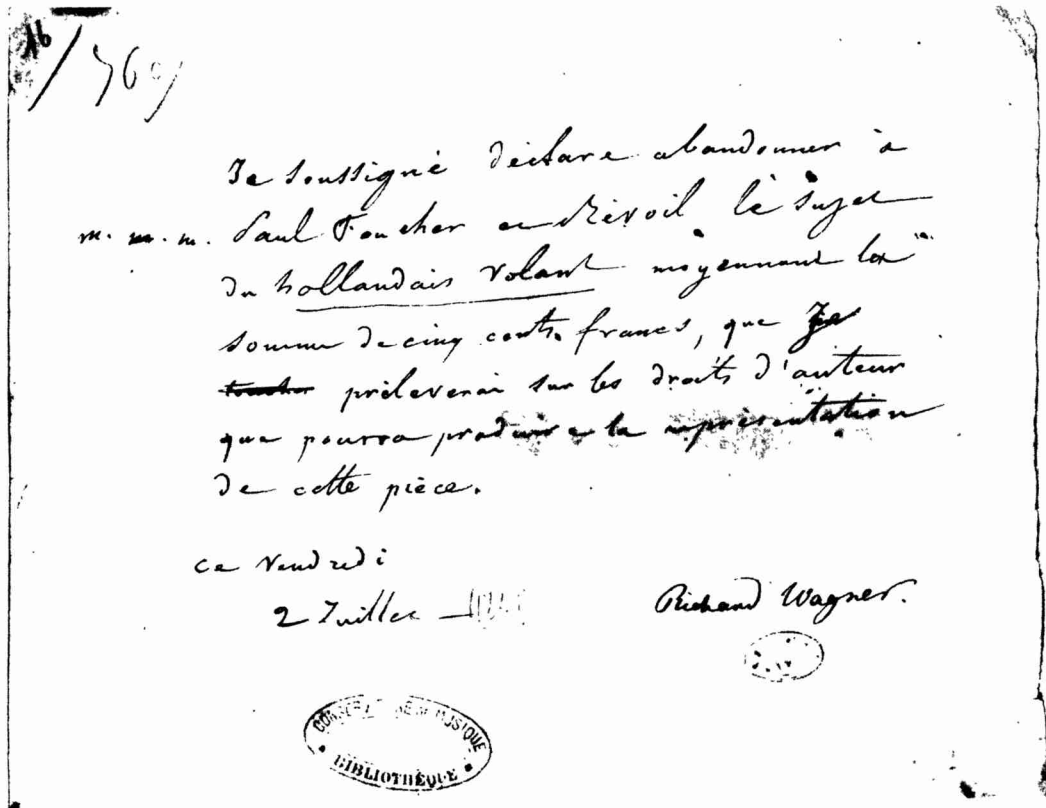 16
Je soussigné déclare abandonner à
m. m. m. Paul Foucher et Révoil le sujet
du hollandais volant moyennant la
somme de cinq cents francs, que je
toucher préleverai sur les droits d'auteur
que pourra produire la représentation
de cette pièce.
ce Vendredi
2 Juillet
Richard Wagner.
DE MUSIQUE
BIBLIOTHÈQUE